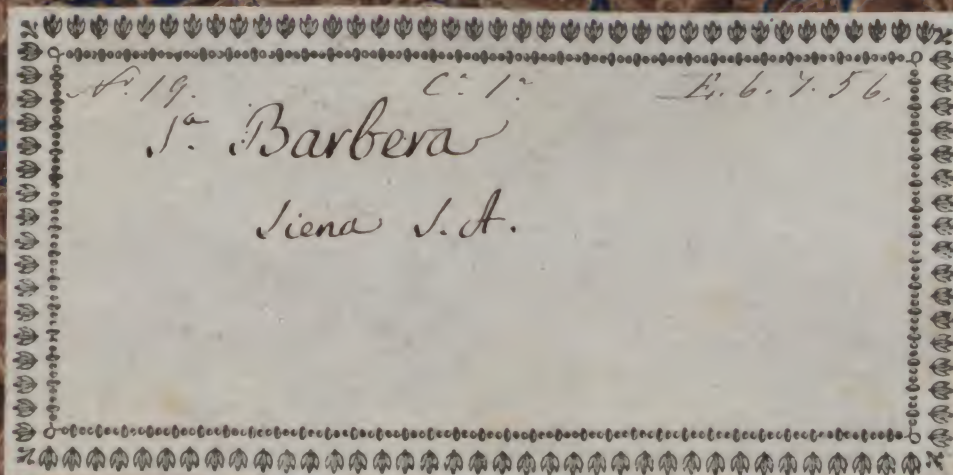 N.º 19. C.ª 1.ª E. 6. 7. 56.
S.ª Barbera
Siena S. A.